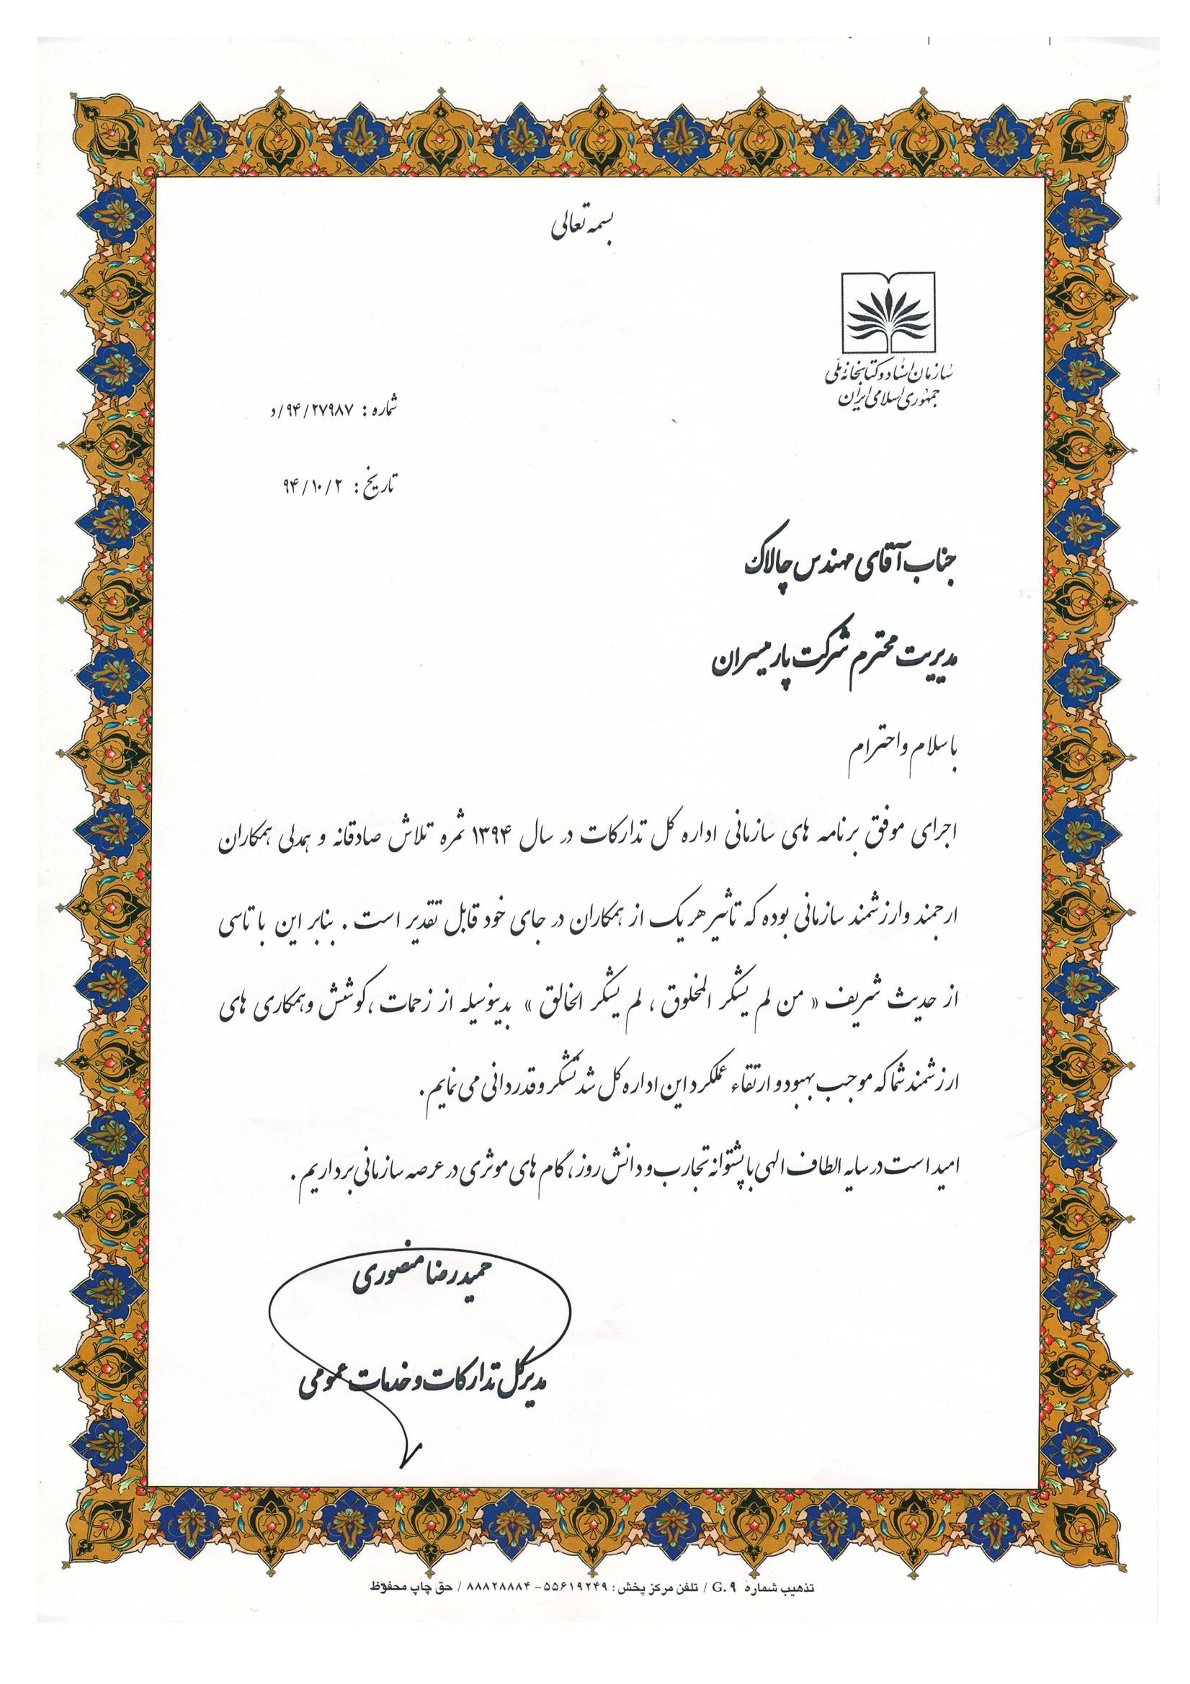 بسمه تعالی
سازمان اسناد و کتابخانه ملی
جمهوری اسلامی ایران
شماره : ۹۴/۲۷۹۸۷/د
تاریخ : ۹۴/۱۰/۲
جناب آقای مهندس چالاک
مدیریت محترم شرکت پارمیسران
با سلام و احترام
اجرای موفق برنامه های سازمانی اداره کل تدارکات در سال ۱۳۹۴ ثمره تلاش صادقانه و همدلی همکاران
ارجمند وارزشمند سازمانی بوده که تاثیر هر یک از همکاران در جای خود قابل تقدیر است . بنابر این با تاسی
از حدیث شریف « من لم یشکر المخلوق ، لم یشکر الخالق » بدینوسیله از زحمات ،کوشش وهمکاری های
ارزشمند شما که موجب بهبود و ارتقاء عملکرد این اداره کل شد تشکر و قدردانی می نمایم .
امید است در سایه الطاف الهی با پشتوانه تجارب و دانش روز، گام های موثری در عرصه سازمانی برداریم .
حمیدرضا منصوری
مدیرکل تدارکات و خدمات عمومی
تذهیب شماره G.۹ / تلفن مرکز پخش : ۵۵۶۱۹۲۴۹- ۸۸۸۲۸۸۸۴ / حق چاپ محفوظ